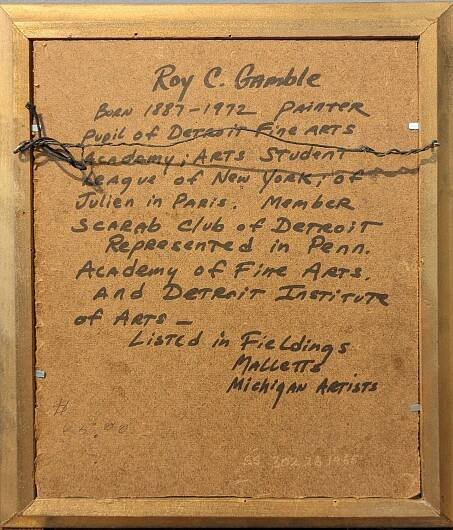 Roy C. Gamble
Born 1887-1972 Painter
Pupil of Detroit Fine Arts
Academy; Arts Student
League of New York; of
Julien in Paris. Member
Scarab Club of Detroit
Represented in Penn.
Academy of Fine Arts.
And Detroit Institute
of Arts —
Listed in Fieldings
Malletts
Michigan Artists
#